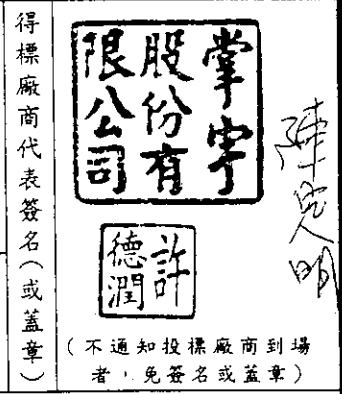 得標廠商代表簽名（或蓋章）
掌宇
股份有
限公司
許
德潤
（不通知投標廠商到場
者，免簽名或蓋章）